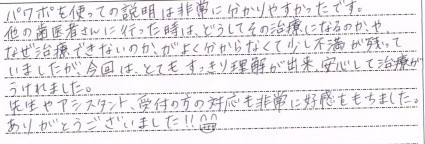 パワポを使っての説明は非常に分かりやすかったです。
他の歯医者さんに行った時は、どうしてその治療になるのか、や、
なぜ治療できないのか、がよく分からなくて少し不満が残って
いましたが、今回は、とてもすっきり理解が出来、安心して治療が
うけれました。
先生やアシスタント、受付の方の対応も非常に好感をもちました。
ありがとうございました!!